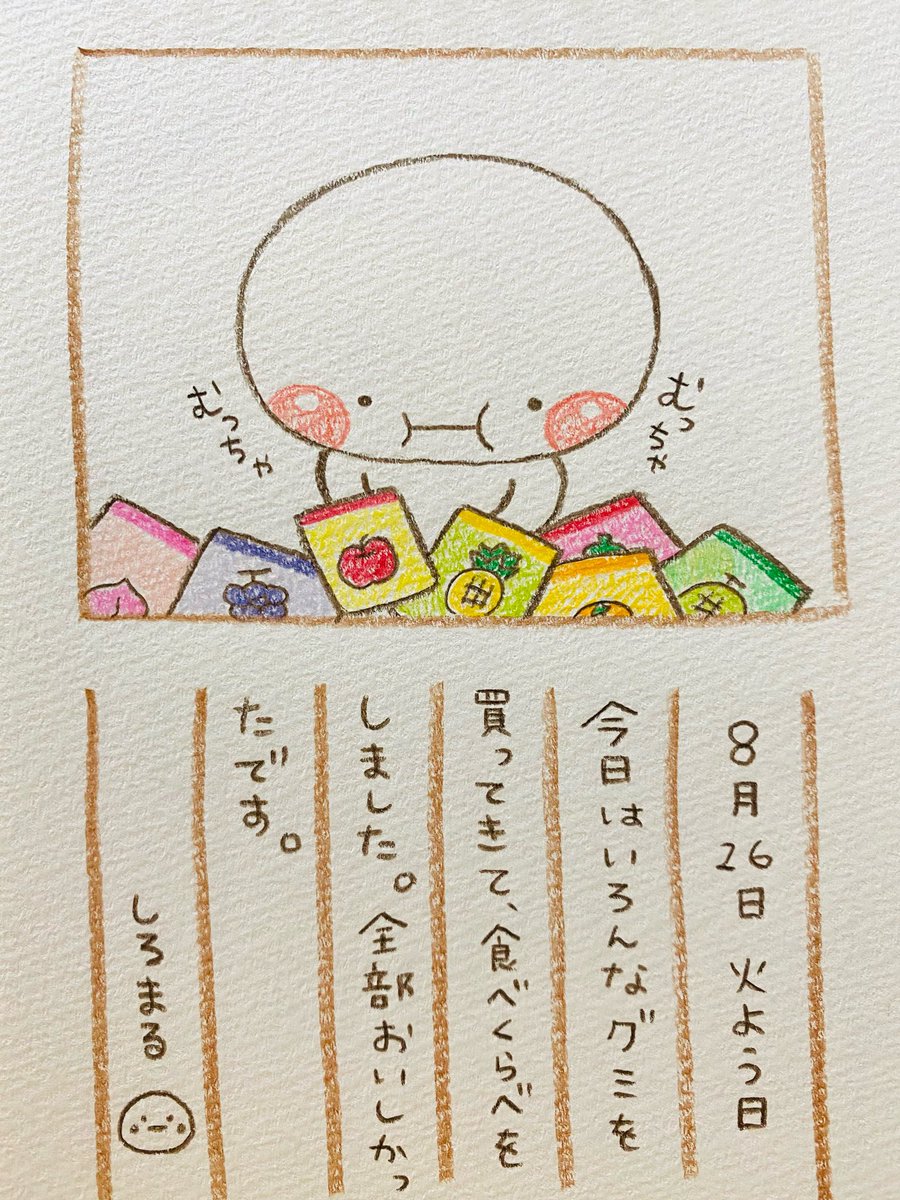 むっちゃ
むっちゃ
8月26日 火よう日
今日はいろんなグミを
買ってきて、食べくらべを
しました。全部おいしかっ
たです。
しろまる